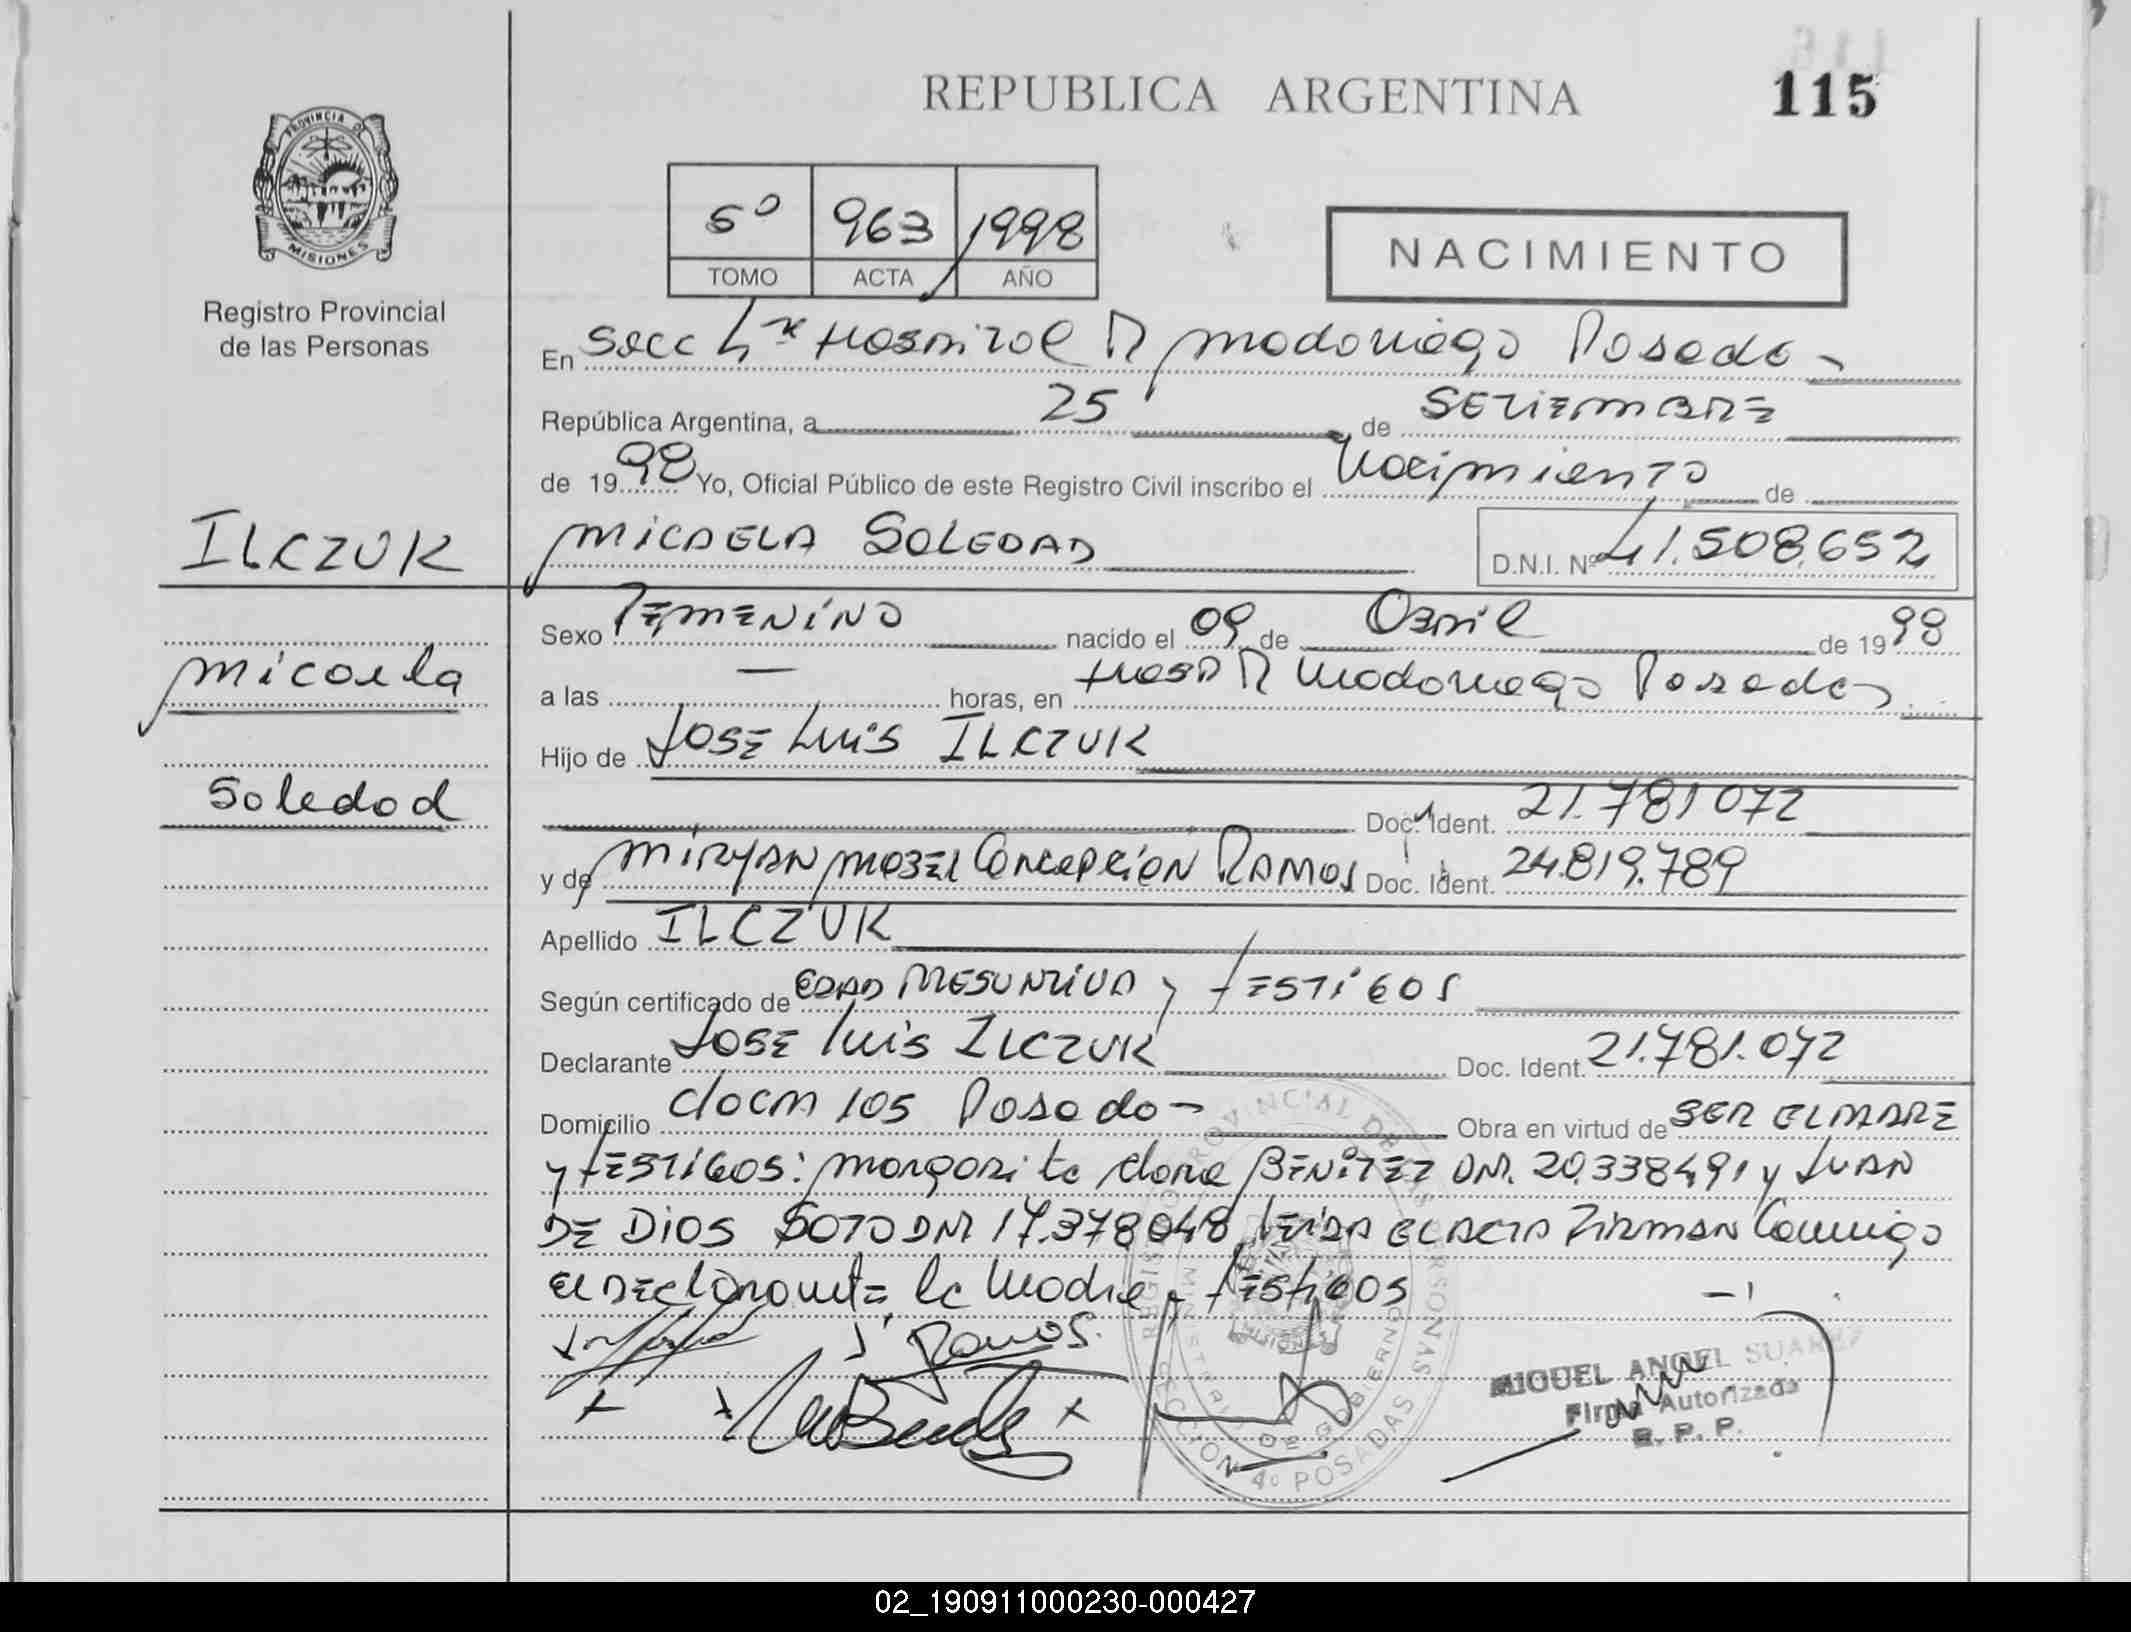 REPUBLICA ARGENTINA
115
PROVINCIA DE
MISIONES
Registro Provincial
de las Personas
5º 963 1998
TOMO ACTA AÑO
NACIMIENTO
En Secc 4ta Hospital R Madariaga Posadas
República Argentina, a 25 de SETIEMBRE
de 1998 Yo, Oficial Público de este Registro Civil inscribo el Nacimiento de
ILCZUK
MICAELA SOLEDAD D.N.I. Nº 41.508.652
Micaela
Soledad
Sexo FEMENINO nacido el 09 de Abril de 1998
a las — horas, en Hosp R Madariaga Posadas
Hijo de JOSE Luis ILCZUK
Doc. Ident. 21.781.072
y de MIRYAN MABEL Concepcion RAMOS Doc. Ident. 24.819.789
Apellido ILCZUK
Según certificado de EDAD PRESUNTIVA y TESTIGOS
Declarante JOSE Luis ILCZUK Doc. Ident. 21.781.072
Domicilio 105 Posadas Obra en virtud de SER EL PADRE
y TESTIGOS: Margarita BENITEZ DNI. 20.338491 y JUAN
DE DIOS SOTO DNI 17.378048 LEIDA EL ACTA FIRMAN Conmigo
El DEclarante, la Madre y TESTIGOS
Ramos
REGISTRO PROVINCIAL DE LAS PERSONAS
MINISTERIO DE GOBIERNO
SECCION 4º POSADAS
MISIONES
MIGUEL ANGEL SUAREZ
Firma Autorizada
R. P. P.
02_190911000230-000427